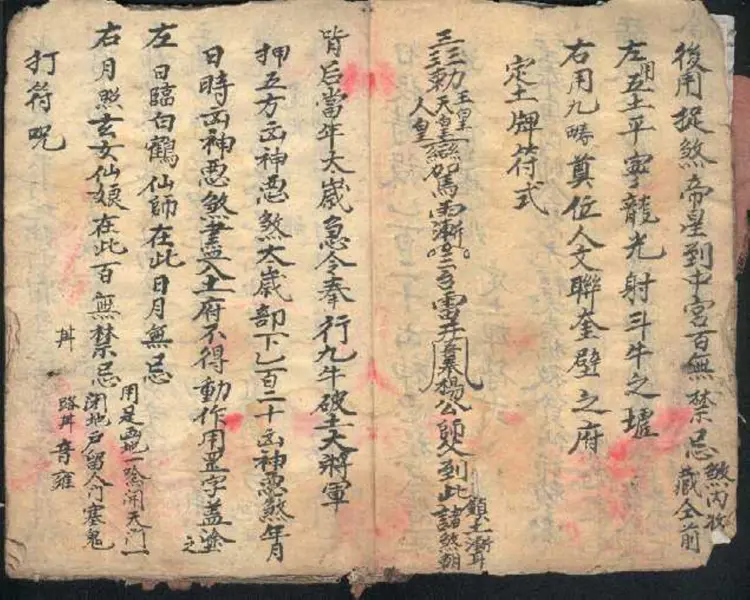 後用捉煞帝星到中宮百無禁忌
藏全前
左用五土平寧龍光射斗牛之墟
右用九疇奠位人文聯奎壁之府
定土牌符式
勅
玉皇
天皇
人皇
鸞駕
楊公師父到此諸煞朝
背后當年太歲急令奉行九牛破土大將軍
押五方凶神惡煞太歲部下乙百二十凶神惡煞年月
日時凶神惡煞盡入土府不得動作用罡字蓋塗之
左日臨白鶴仙師在此日月無忌
右月照玄女仙娘在此百無禁忌
用是画地一路開天門一
閉地户留人门塞鬼
路
打符呪